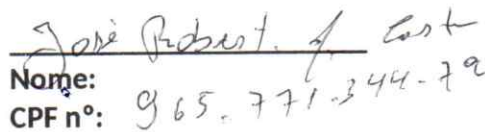 José Robert. f. Cost
Nome:
CPF nº: 965.771.344-79